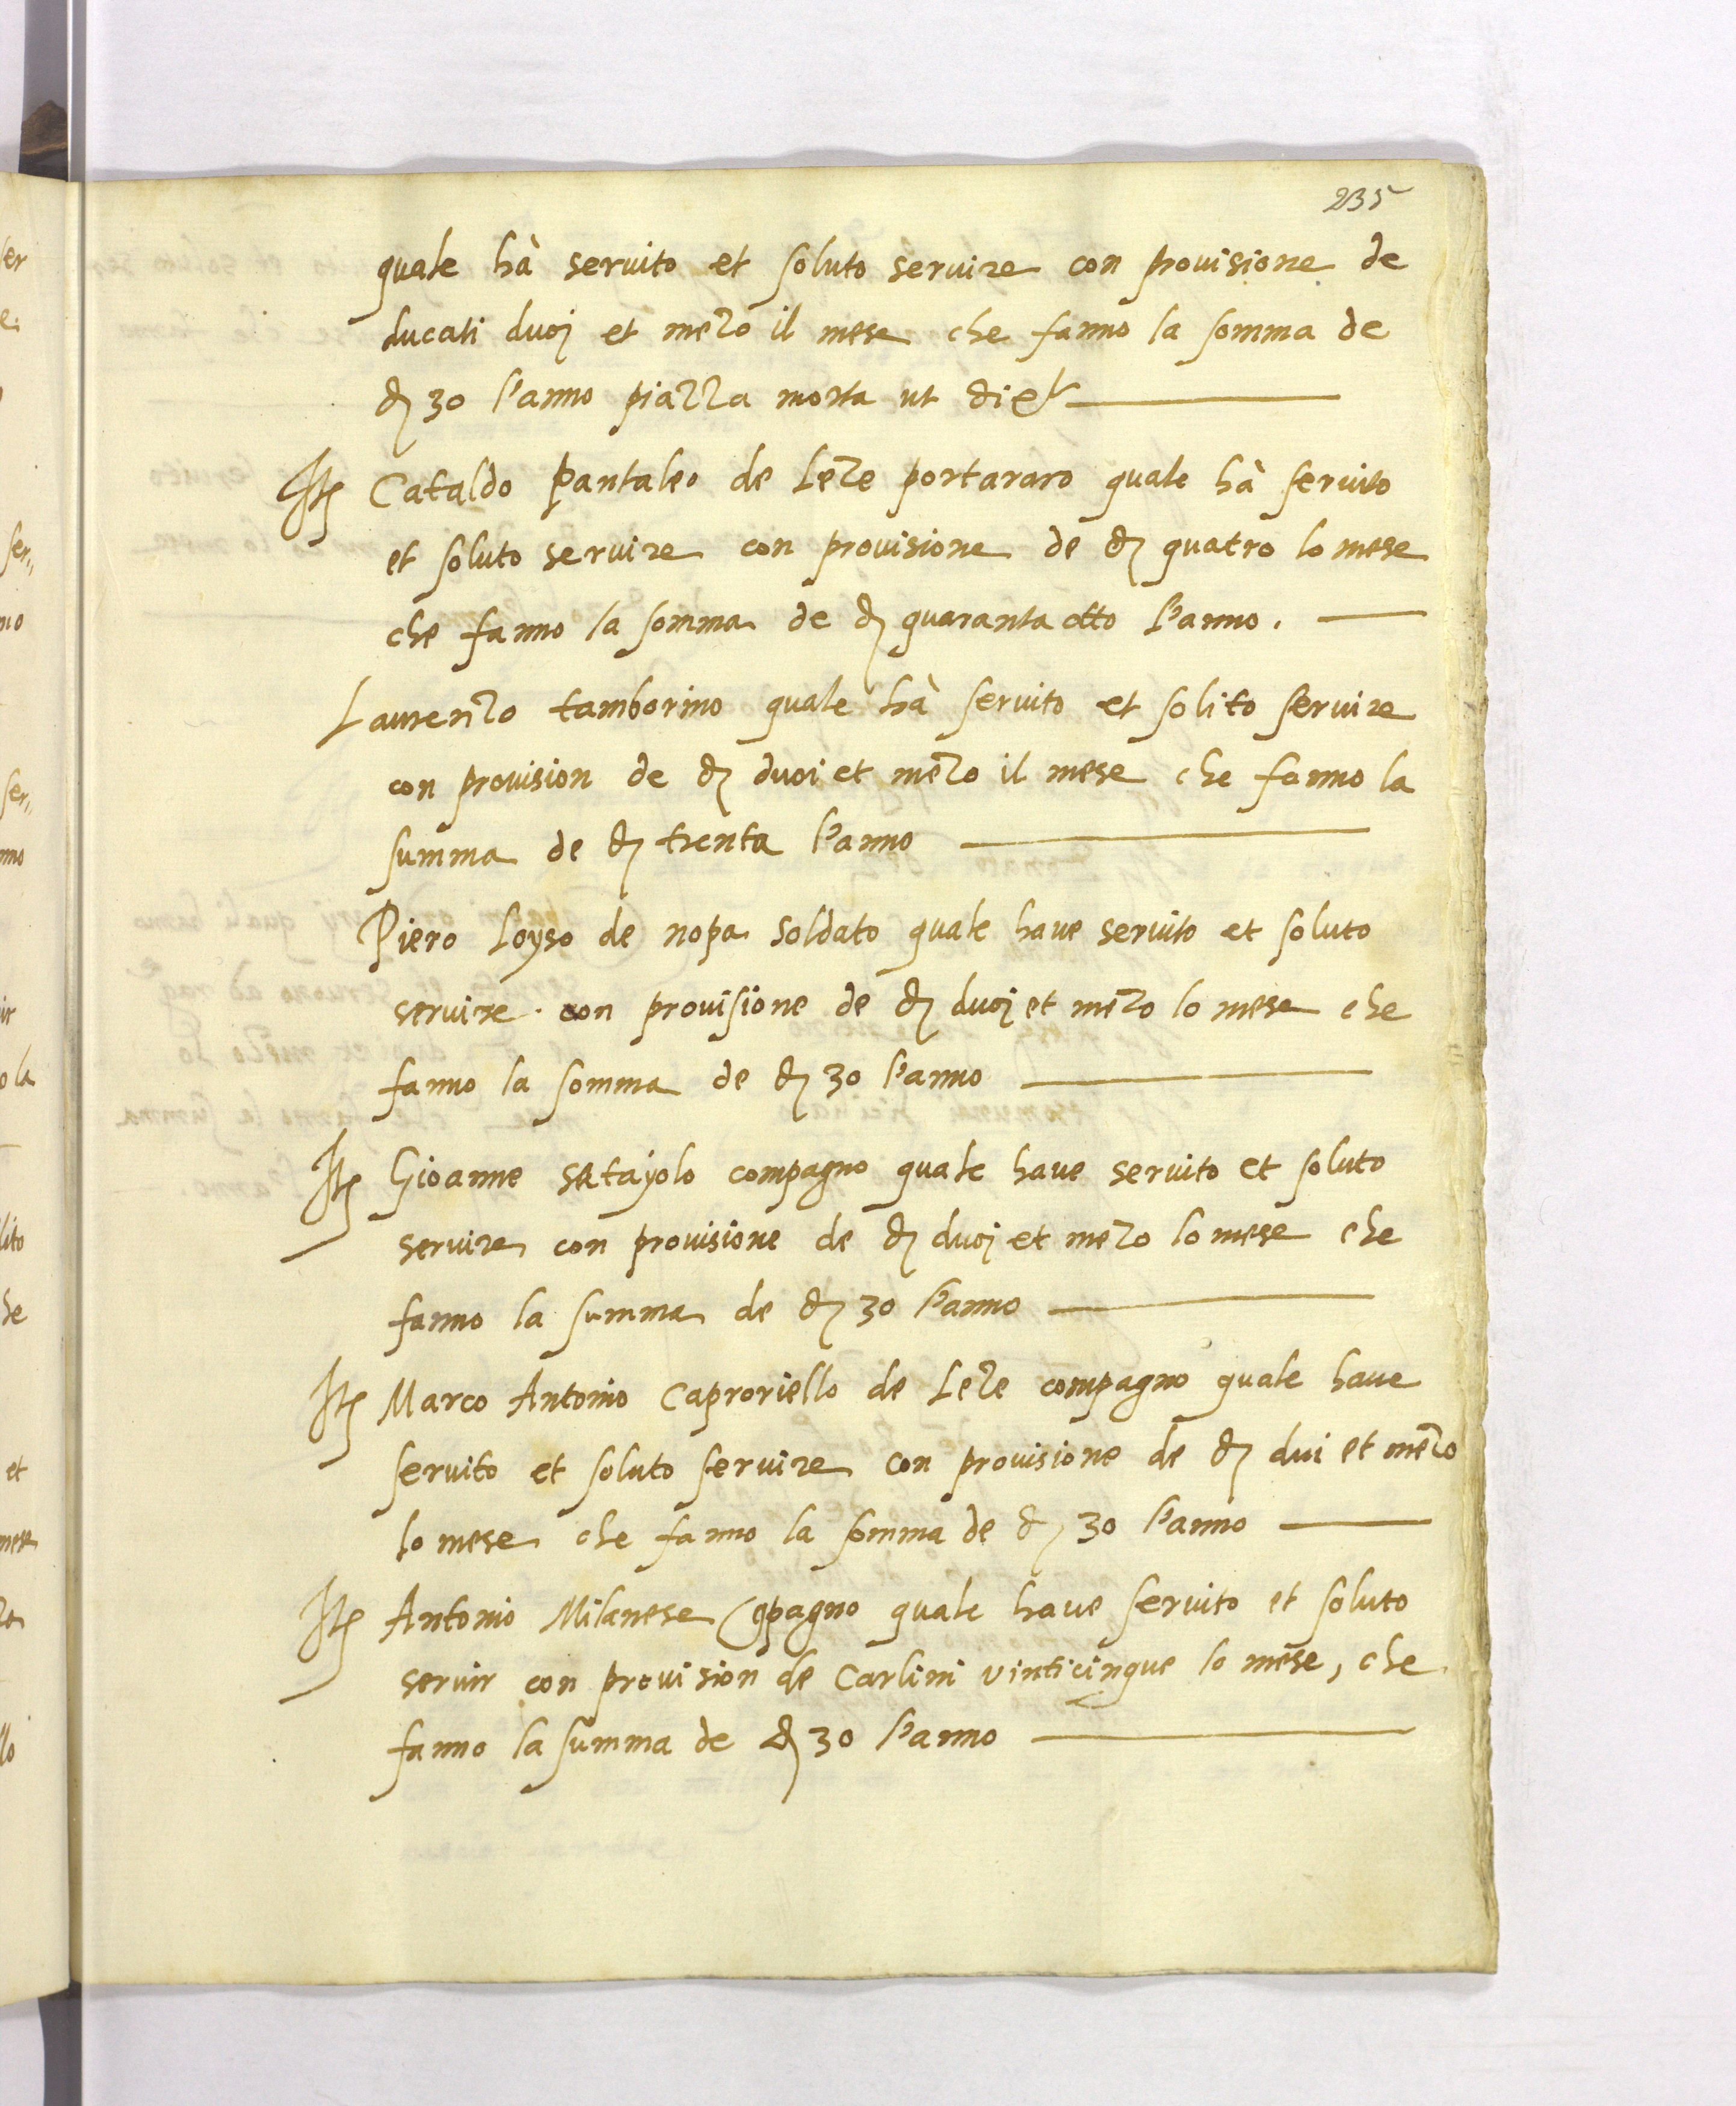 235
quale hà seruito et soluto seruire con prouisione de
ducati duoj et mezo il mese che fanno la somma de
d 30 l'anno piazza morta ut
Itē Cataldo Pantaleo de Leze portararo quale hà seruito
et soluto seruire con prouisione de d quatro lo mese
che fanno la somma de d quaranta otto l'anno.
Laurenzo tamborino quale hà seruito et solito seruire
con prouision de d duoi et mezo il mese che fanno la
summa de d trenta l'anno
Piero Loyso de nopa soldato quale haue seruito et soluto
seruire con prouisione de d duoj et mezo lo mese che
fanno la somma de d 30 l'anno
Itē Gioanne satayolo compagno quale haue seruito et soluto
seruire con prouisione de d duoj et mezo lo mese che
fanno la summa de d 30 l'anno
Itē Marco Antonio Caproriello de Leze compagno quale haue
seruito et soluto seruire con prouisione de d dui et mezo
lo mese che fanno la somma de d 30 l'anno
Itē Antonio Milanese Cōpagno quale haue seruito et soluto
seruir con prouision de Carlini vinticinque lo mese, che
fanno la summa de d 30 l'anno